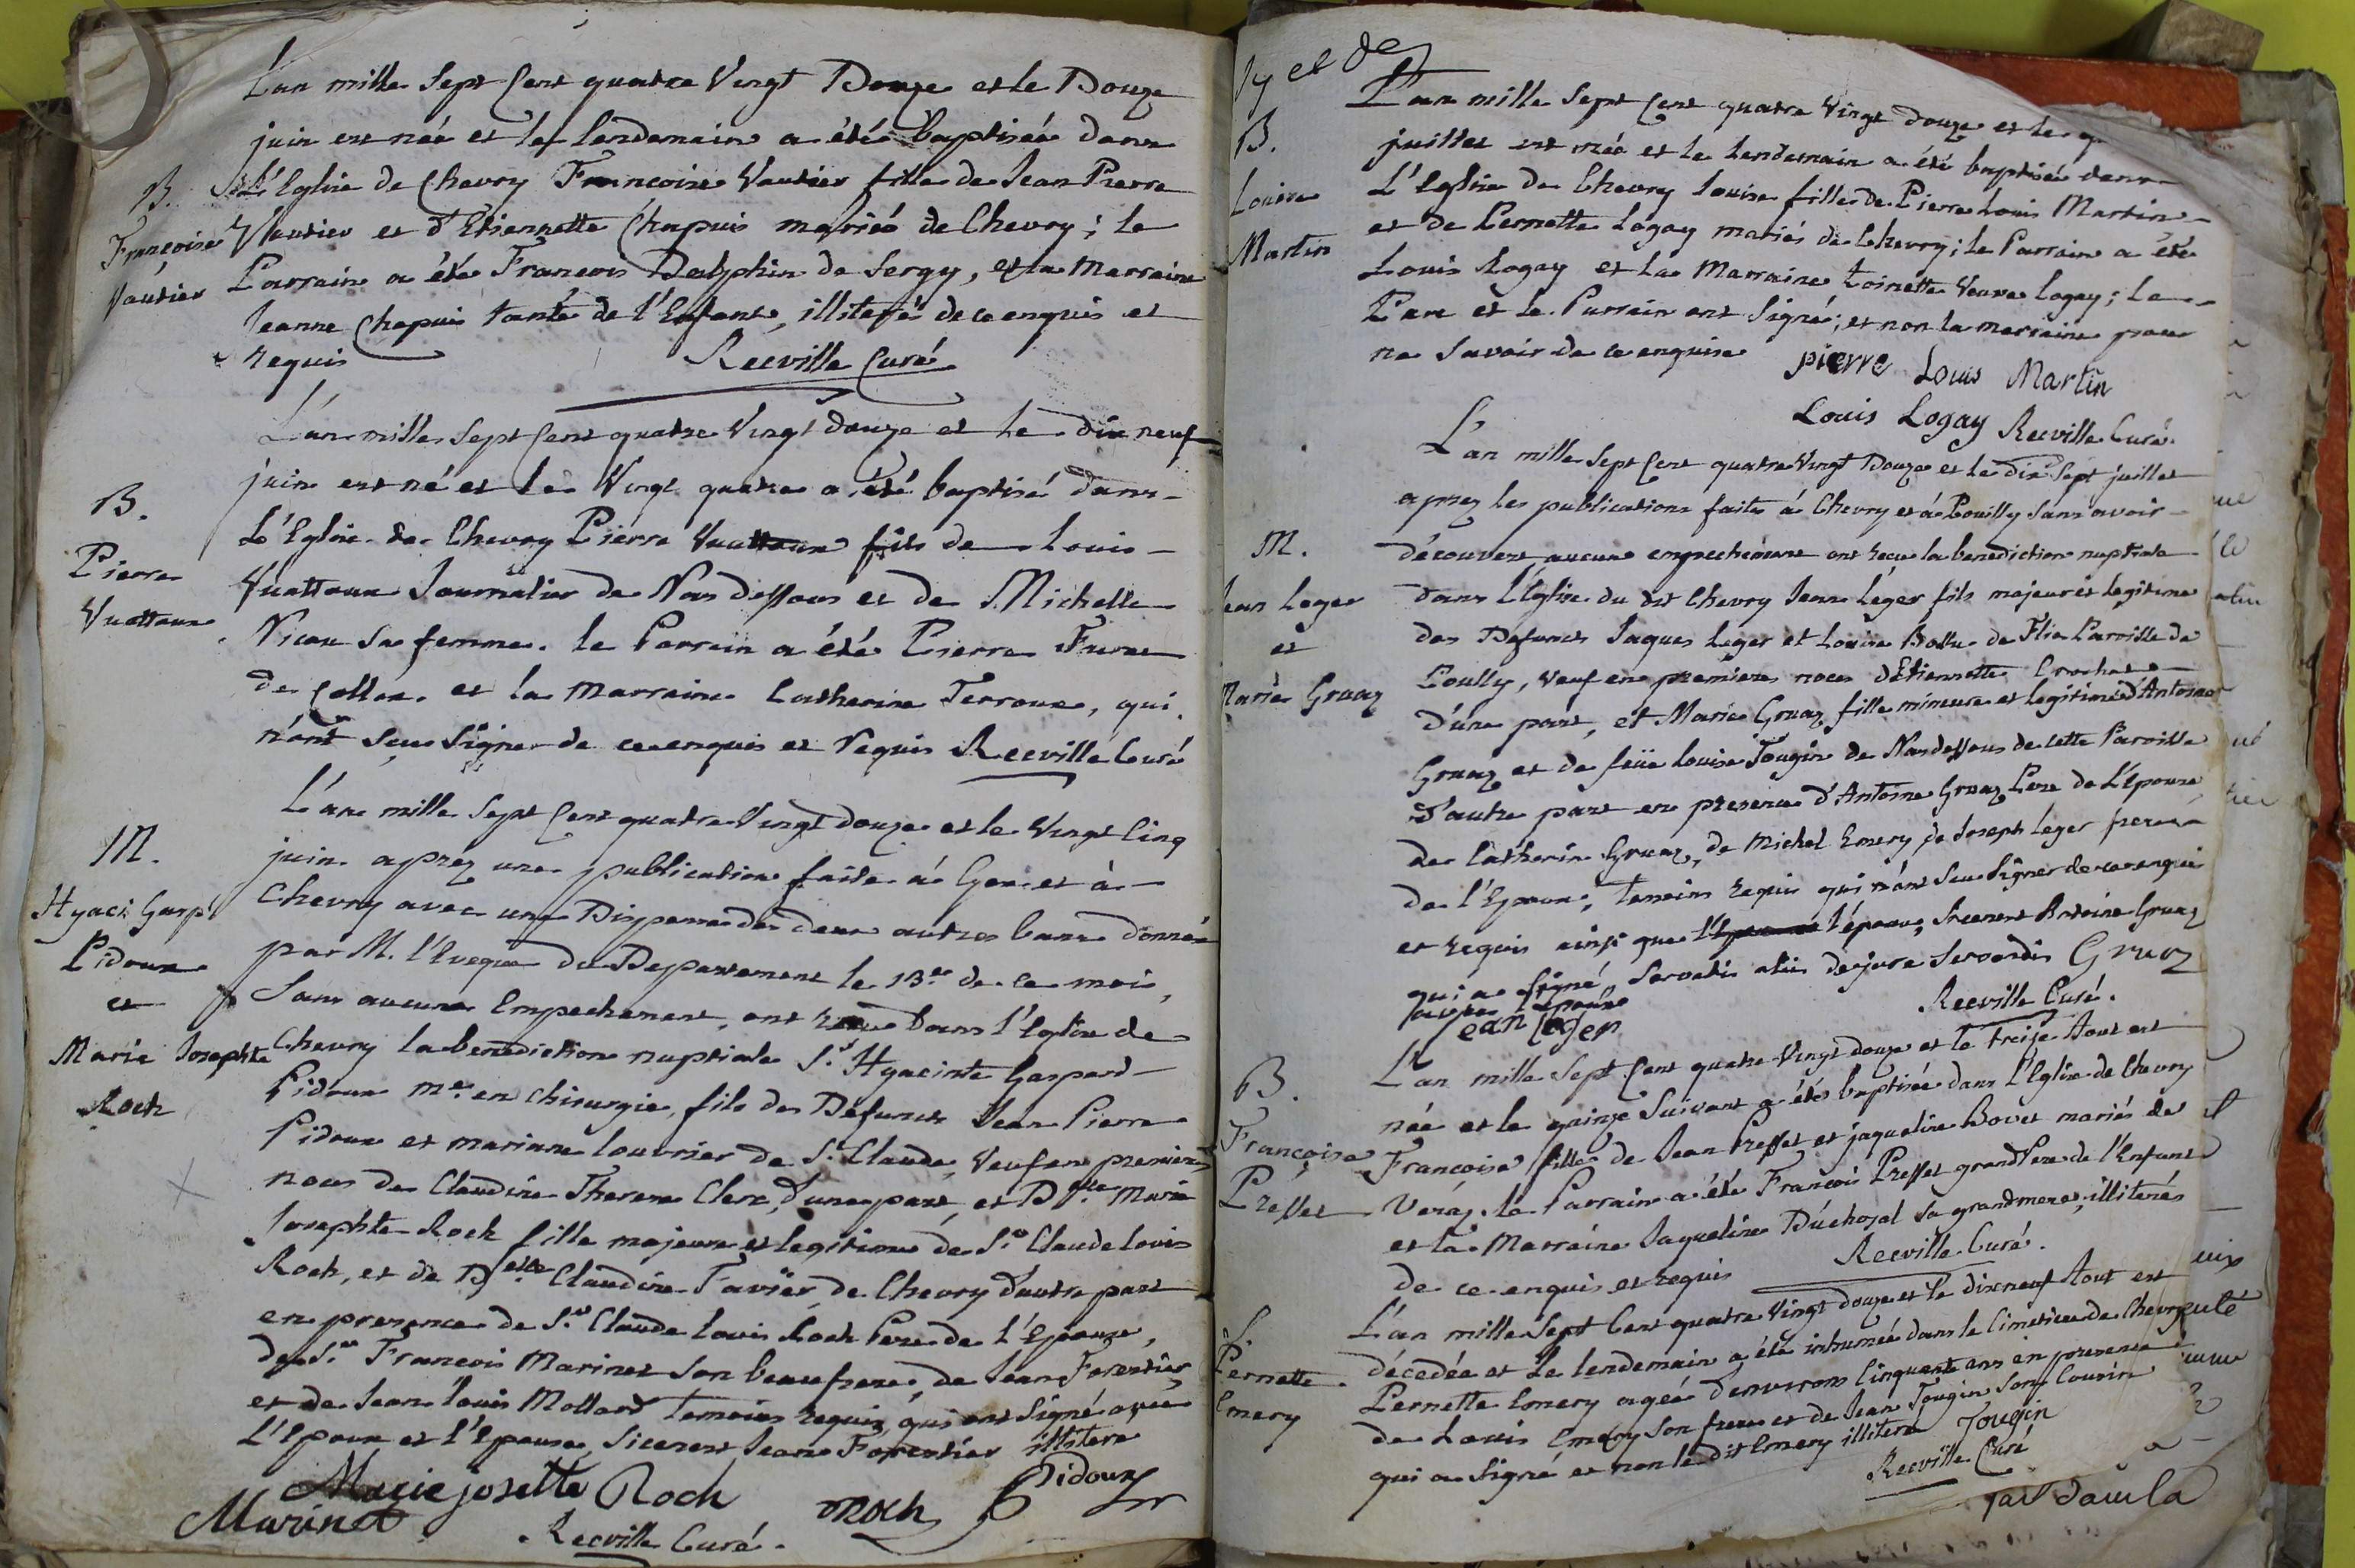 L'an mille Sept Cent quatre Vingt Douze et le Douze
juin est née et le lendemain a été baptisée dans
B.
L'Eglise de Chevry Francoise Vautier fille de Jean Pierre
Françoise
Vautier et d'Etiennette Chapuis mariés de Chevry ; le
Vautier
Parrain a été Francois Dalphin de Sergy, et la Marraine
Jeanne Chapuis tante de l'Enfant, illiterés de ce enquis et
requis Reeville Curé
L'an mille Sept Cent quatre Vingt douze et le dix neuf
juin est né et le Vingt quatre a été baptisé dans
B.
L'Eglise de Chevry Pierre Vuattoux fils de Louis
Pierre
Vuattoux Journalier de Nas dessous et de Michelle
Vuattoux
Nicou Sa femme. le Parrain a été Pierre
de Collex et la Marraine Catherine Terroux, qui
n'ont Sçeu Signer de ce enquis et requis Reeville Curé
L'an mille Sept Cent quatre Vingt douze et le Vingt Cinq
M.
juin aprez une publication faite à Gex et à
Hyaci: Gasp:
Chevry avec une Dispense des deux autres bans donnée
Pidoux
par M. l'Eveque du Departement le 13.e de ce mois,
et
Sans aucune Empechement, ont reçue dans l'Eglise de
Marie Josephte
Chevry la benediction nuptiale S.r Hyacinte Gaspard
Roch
Pidoux m.e en chirurgie, fils des Defunts Jean Pierre
Pidoux et mariane louvrier de S.t Claude, Veuf en premieres
noces de Claudine Therese Clerc, d'une part, et D.lle Marie
Josephte Roch fille majeure et legitime de S.r Claude Louis
Roch, et de D.elle Claudine Favier de Chevry d'autre part
en presence de S.r Claude Louis Roch Pere de l'Epouse,
de S.r Francois Marinet Son beaufrere, de Jean Forestier
et de Jean Louis Mollard temoins requis qui ont Signé avec
L'Epoux et l'Epouse, Sicenest Jean Forestier illitere
Marie josette Roch Pidoux
Marinet Roch
Reeville Curé.
L'an mille Sept Cent quatre Vingt douze et le
B.
juillet est née et le lendemain a été baptisée dans
Louise
L'Eglise de Chevry Louise fille de Pierre Louis Martin
Martin
et de Pernette Logay mariés de Chevry ; le Parrain a été
Louis Logay et la Marraine Toinette Veuve Logay ; le
Pere et le Parrain ont Signé, et non la marraine pour
ne Savoir de ce enquise pierre Louis Martin
Louis Logay Reeville Curé.
L'an mille Sept Cent quatre Vingt Douze et le dix Sept juillet
aprez les publications faites à Chevry et à Pouilly Sans avoir
M.
découvert aucune empechement ont reçu la benediction nuptiale
Jean Leger
dans l'Eglise du dit Chevry Jean Léger fils majeur et legitime
et
des Defunts Jaques Leger et Louise de Flie Paroisse de
Marie Gruaz
Pouilly, Veuf en premieres noces d'Etiennette
d'une part, et Marie Gruaz fille mineure et legitime d'Antoine
Gruaz et de feüe Louise Tougin de Nasdessous de cette Paroisse
d'autre part en presence d'Antoine Gruaz Pere de L'Epouse,
de Catherin Gruaz, de Michel Emery de Joseph Leger frere
de l'Epoux, temoins requis qui n'ont Sceu Signer de ce enquis
et requis ainsi que l'épouse, Sicenest Antoine Gruaz
qui a Signé, Servatis aliis de jure Servandis Gruaz
avec l'époux
Jean Leger Reeville Curé.
L'an mille Sept Cent quatre Vingt douze et le treize Aout est
B.
née et le quinze Suivant a été baptisée dans L'Eglise de Chevry
Françoise
Francoise fille de Jean Presset et jaqueline Bovet mariés de
Presset
Veraz. le Parrain a été Francois Presset grand Pere de l'Enfant
et la Marraine Jaqueline Duchozal Sa grandmere, illiterés
de ce enquis et requis Reeville Curé.
L'an mille Sept Cent quatre Vingt douze et le dixneuf Aout est
S.
décedée et le lendemain a été inhumée dans le Cimetiere de Chevry
Pernette
Pernette Emery agée d'environs Cinquante ans en presence
Emery
de Louis Emery Son frere et de Jean Tougin Son Cousin
qui a Signé et non le dit Emery illitere Tougin
Reeville Curé